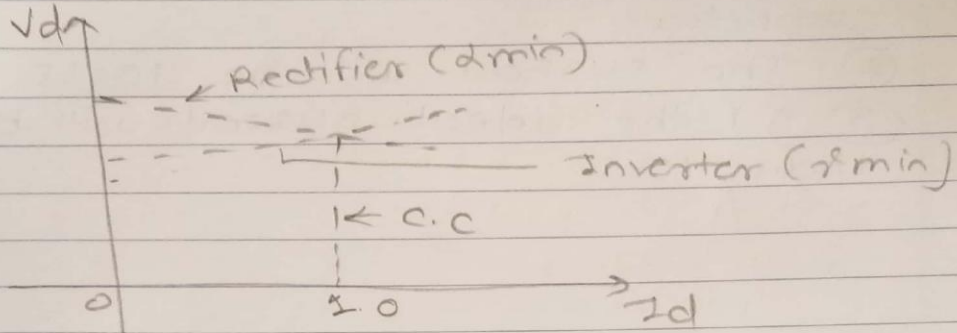 Vd
Rectifier (αmin)
Inverter (γmin)
C.C
0
1.0
Id